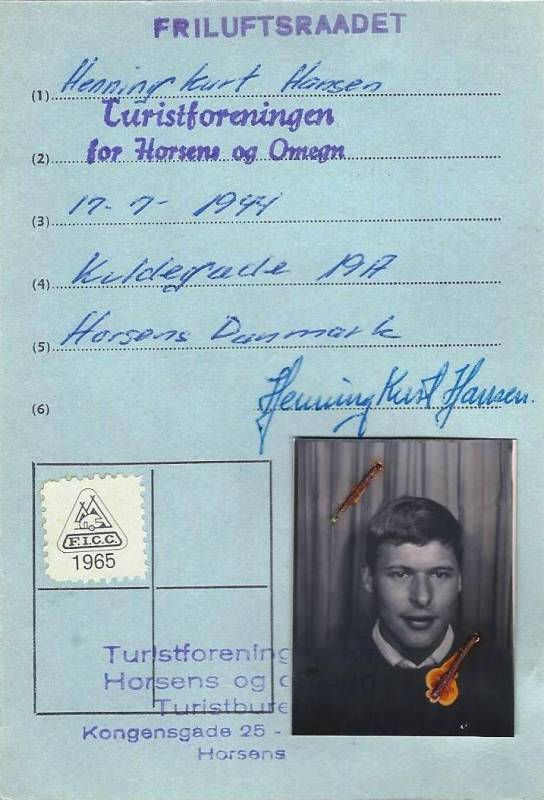 FRILUFTSRAADET
(1) Henning Kurt Hansen
Turistforeningen
(2) for Horsens og Omegn
(3) 17-7-1944
(4) Kildegade 19A
(5) Horsens Danmark
(6) Henning Kurt Hansen.
F.I.C.C.
1965
Turistforening
Horsens og
Turistbure
Kongensgade 25 -
Horsens